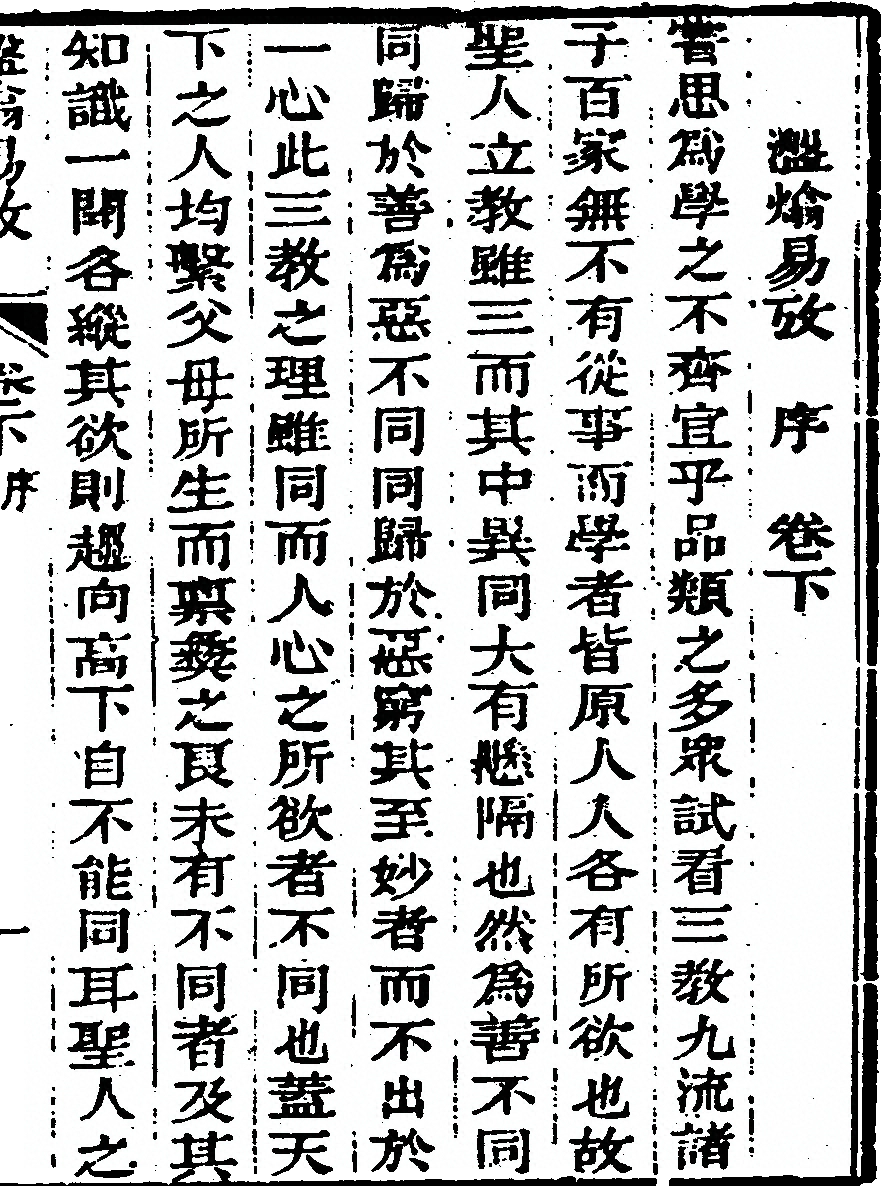 灩熻易攷 序 卷下
嘗思爲學之不齊宜乎品類之多衆試看三教九流諸
子百家無不有從事而學者皆原人人各有所欲也故
聖人立教雖三而其中異同大有懸隔也然爲善不同
同歸於善爲惡不同同歸於惡窮其至妙者而不出於
一心此三教之理雖同而人心之所欲者不同也蓋天
下之人均繫父母所生而禀彝之良未有不同者及其
知識一開各縱其欲則趨向高下自不能同耳聖人之
易攷 卷下 序 一